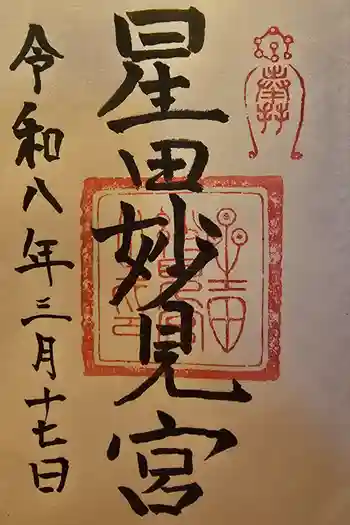 奉拝
星田妙見宮
令和八年三月十七日